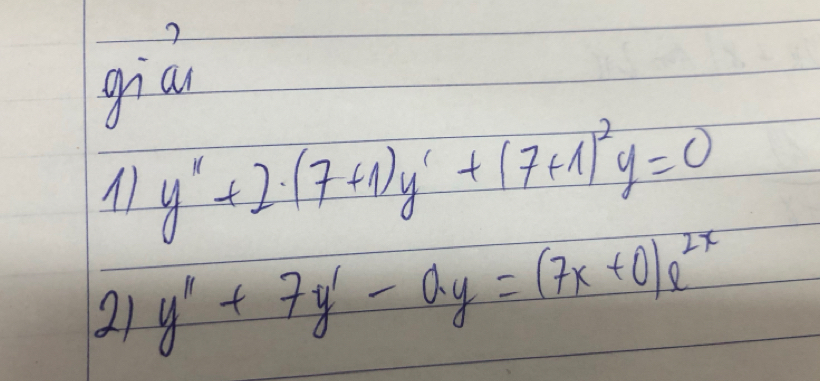 giải
1) y'' + 2·(7+1)y' + (7+1)²y = 0
2) y'' + 7y' - 0.y = (7x + 0)e²ˣ